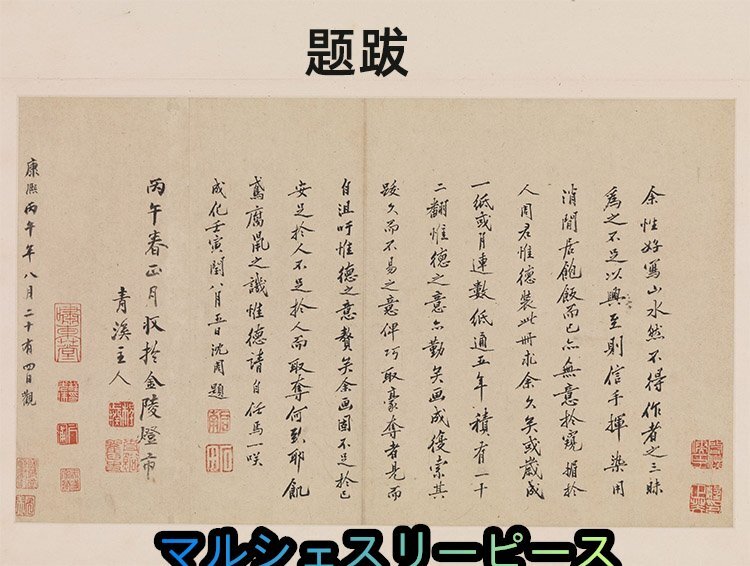 题跋
余性好寫山水然不得作者之三昧
爲之不足以興至則信手揮染用
消閒居飽飯而已亦無意於媚於
人周君惟德裝此冊求余久矣或歲成
一紙或月連數紙通五年積有一十
二翻惟德之意亦勤矣画成復索其
跋久而不易之意俾巧取豪奪者見而
自沮吁惟德之意贅矣余画固不足於己
安足於人不足於人而取奪何耶飢
鳶腐鼠之譏惟德請自任焉一咲
成化壬寅閏八月五日沈周題
丙午春正月收於金陵燈市
青溪主人
康熙丙午年八月二十有四日觀
マルシェスリーピース